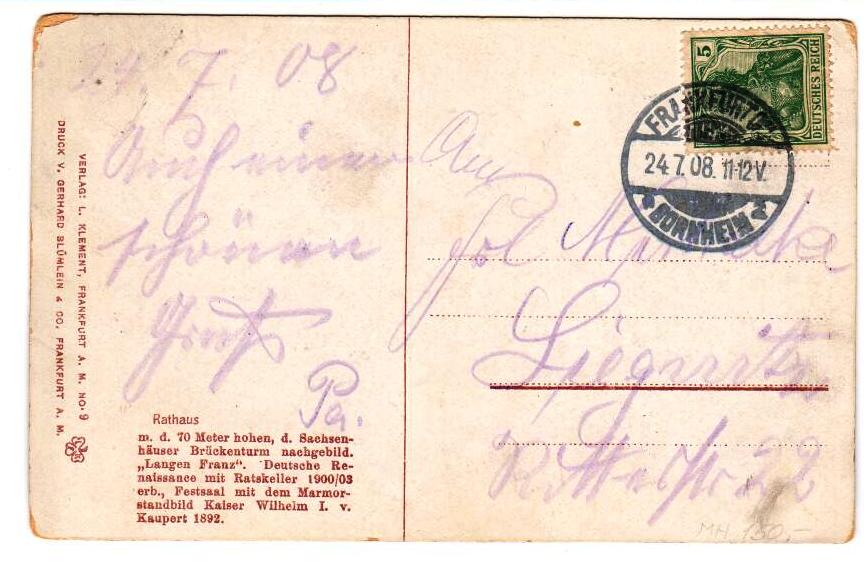 24. 7. 08
Auch einen
schönen
Gruß
Pa.
VERLAG: L. KLEMENT, FRANKFURT A. M. NO. 9
DRUCK V. GERHARD BLÜMLEIN & CO. FRANKFURT A. M.
Rathaus
m. d. 70 Meter hohen, d. Sachsen-
häuser Brückenturm nachgebild.
„Langen Franz“. Deutsche Re-
naissance mit Ratskeller 1900/03
erb., Festsaal mit dem Marmor-
standbild Kaiser Wilhelm I. v.
Kaupert 1892.
5
DEUTSCHES REICH
FRANKFURT
24.7.08. 11-12V.
BORNHEIM
An
Liegnitz
Ritterstr 22
MH 150,-